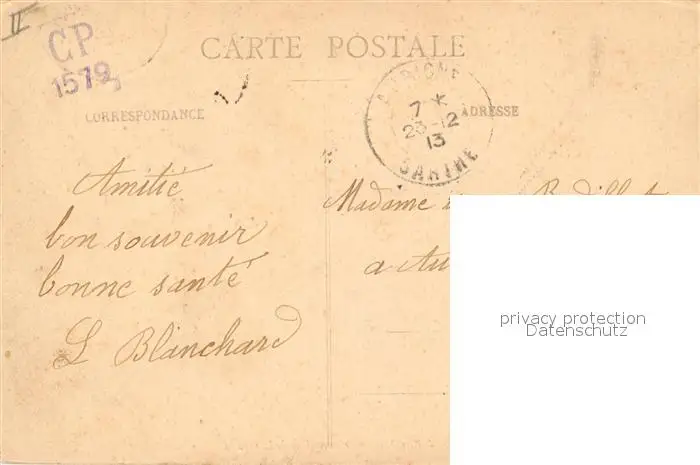 II
CP
1579
CARTE POSTALE
CORRESPONDANCE
ADRESSE
7 *
23-12
13
SARTHE
Amitié
bon souvenir
bonne santé
L Blanchard
Madame
a Au
privacy protection
Datenschutz